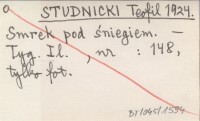 STUDNICKI Teofil 1924.
Smrek pod śniegiem. —
Tyg. Il., nr : 148,
tylko fot.
BY/045/1594